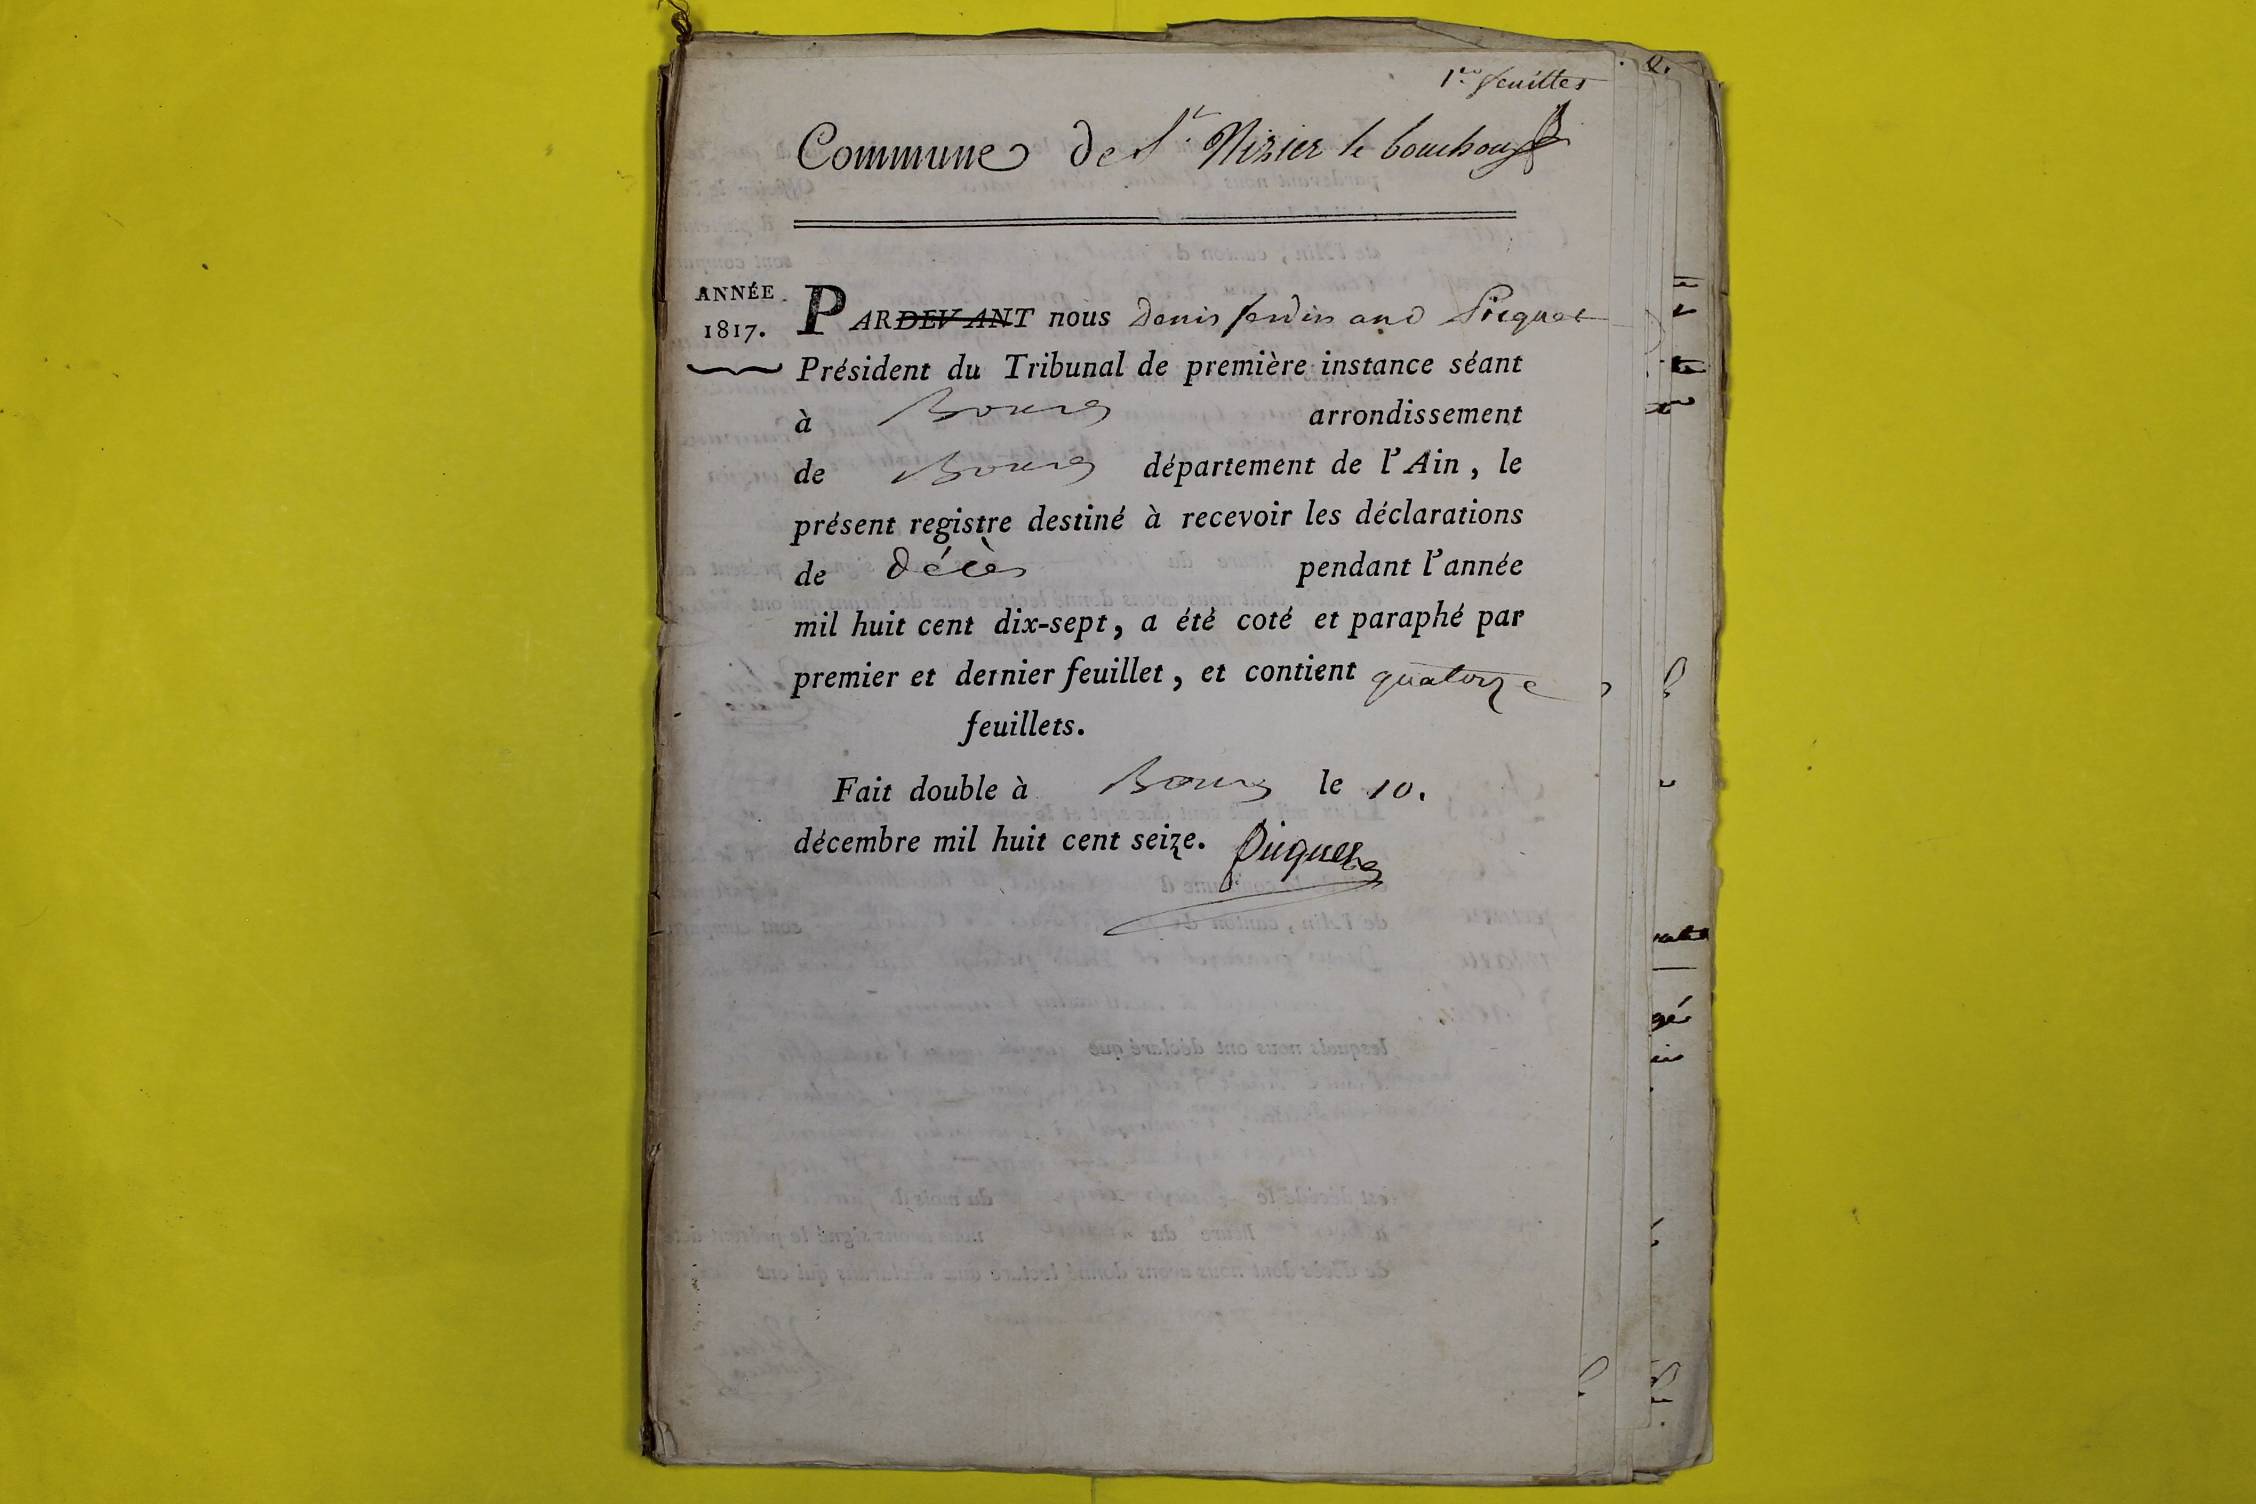 1er feuillet
Commune de St Nizier le bouchoux
ANNÉE
1817.
PARDEVANT nous Denis ferdinand Picquet
Président du Tribunal de première instance séant
à Bourg arrondissement
de Bourg département de l'Ain, le
présent registre destiné à recevoir les déclarations
de décès pendant l'année
mil huit cent dix-sept, a été coté et paraphé par
premier et dernier feuillet, et contient quatorze
feuillets.
Fait double à Bourg le 10.
décembre mil huit cent seize. Picquet